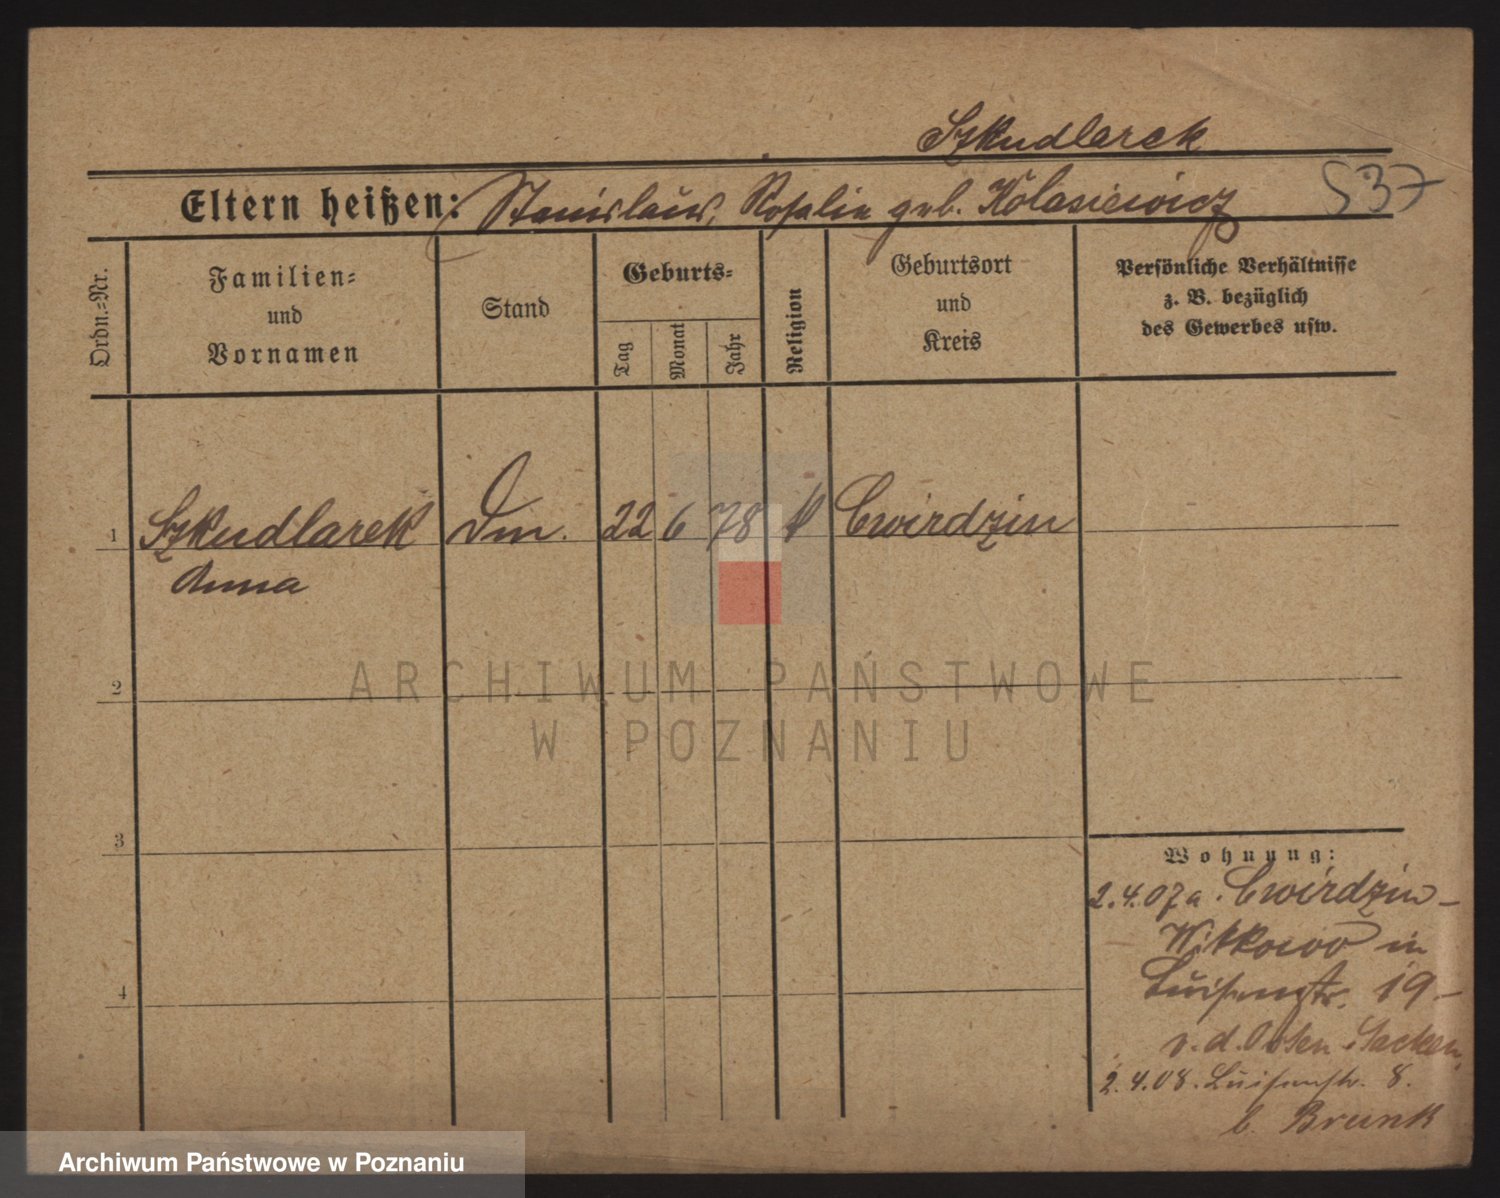 Szkudlarek
Eltern heißen: Stanislaus, Rosalie geb. Kolasiewicz 537
Ordn.=Nr.
Familien=
und
Vornamen
Stand
Geburts=
Tag
Monat
Jahr
Religion
Geburtsort
und
Kreis
Persönliche Verhältnisse
z. B. bezüglich
des Gewerbes usw.
1 Szkudlarek Dm. 22 6 78 k Cwirdzin
Anna
2
3
4
Wohnung:
2.4.07 a. Cwirdzin-
Witkowo in
Luisenstr. 19-
v. d. Osten Sacken,
2.4.08. Luisenstr. 8.
b. Brunk
ARCHIWUM PAŃSTWOWE
W POZNANIU
Archiwum Państwowe w Poznaniu